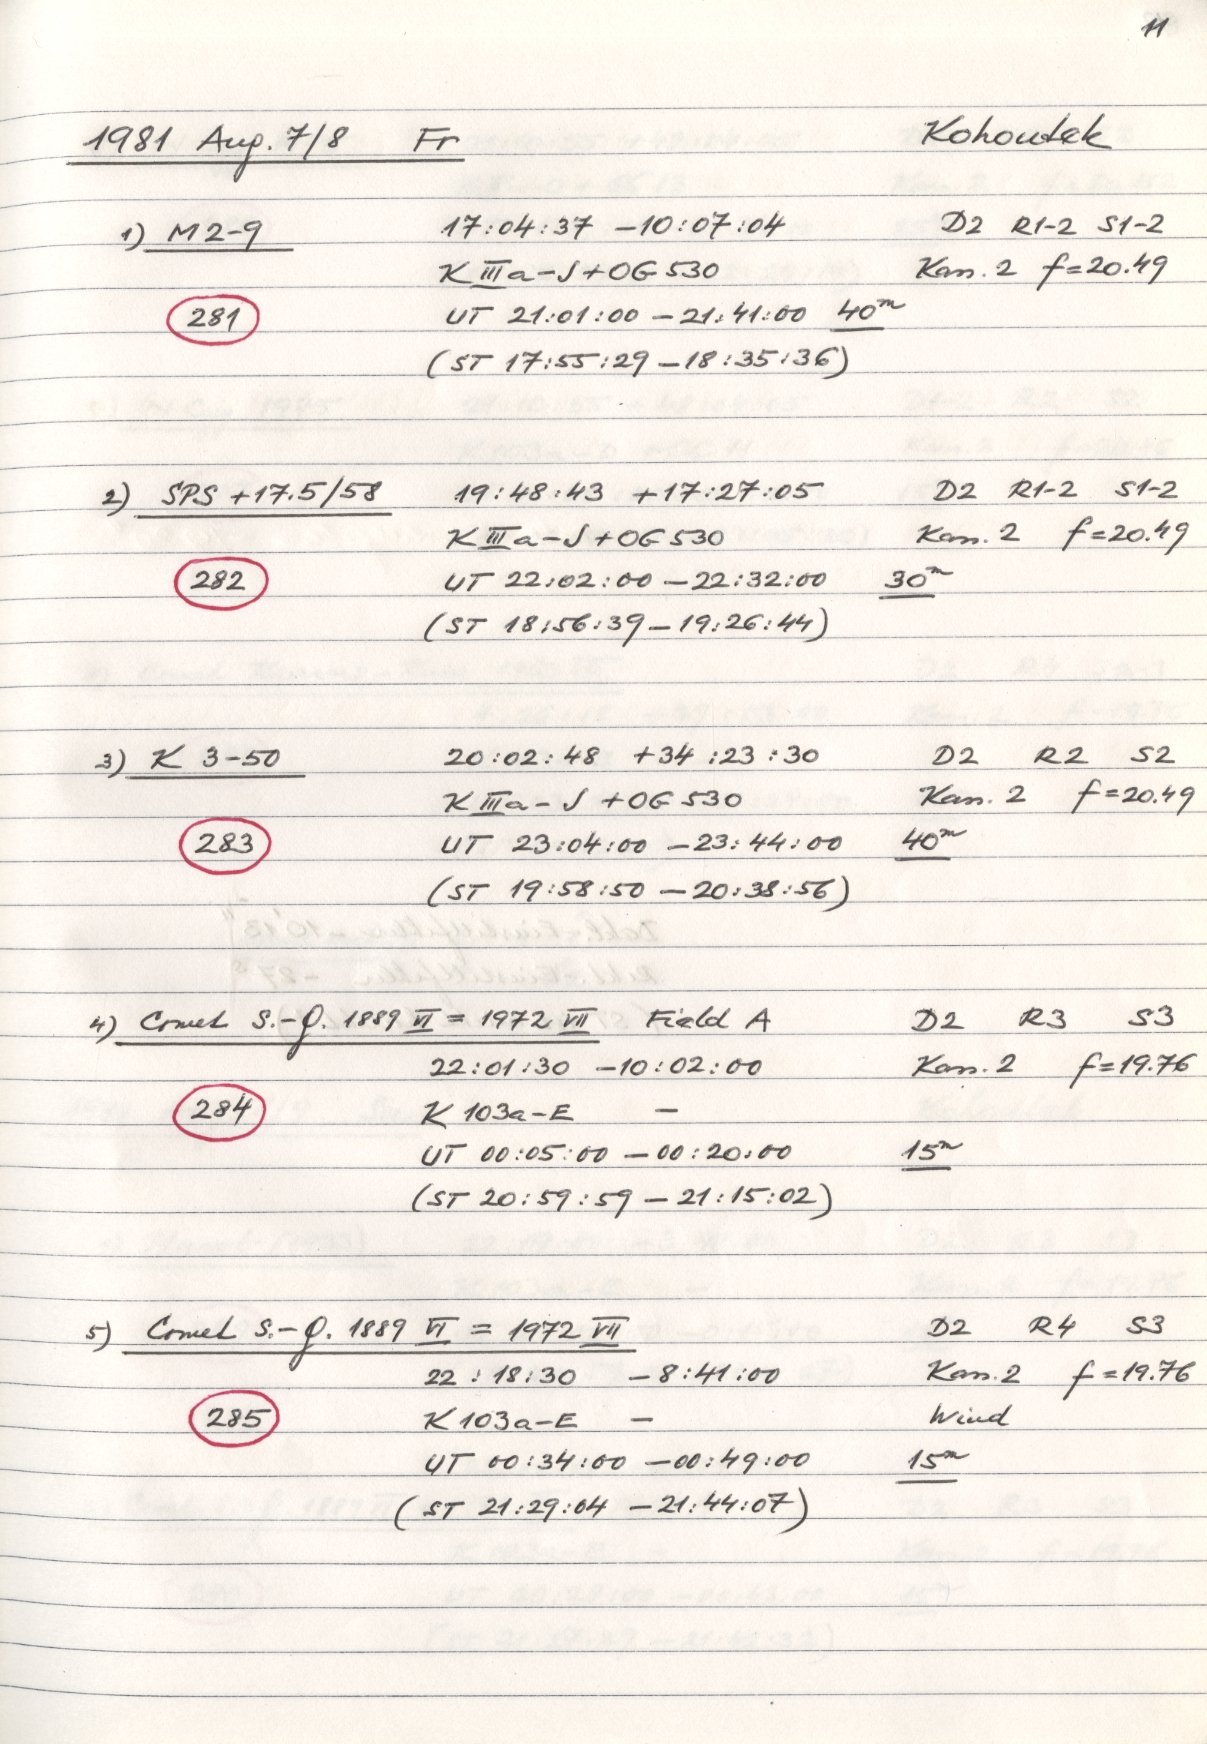 11
1981 Aug. 7/8 Fr Kohoutek
1) M2-9 17:04:37 -10:07:04 D2 R1-2 S1-2
K IIIa-J+OG530 Kass. 2 f=20.49
281 UT 21:01:00 - 21:41:00 40m
(ST 17:55:29 - 18:35:36)
2) SPS +17.5/58 19:48:43 +17:27:05 D2 R1-2 S1-2
K IIIa-J+OG530 Kass. 2 f=20.49
282 UT 22:02:00 - 22:32:00 30m
(ST 18:56:39 - 19:26:44)
3) K 3-50 20:02:48 +34:23:30 D2 R2 S2
K IIIa-J+OG530 Kass. 2 f=20.49
283 UT 23:04:00 - 23:44:00 40m
(ST 19:58:50 - 20:38:56)
4) Comet S.-Q. 1889 VI = 1972 VII Field A D2 R3 S3
22:01:30 -10:02:00 Kass. 2 f=19.76
284 K 103a-E -
UT 00:05:00 - 00:20:00 15m
(ST 20:59:59 - 21:15:02)
5) Comet S.-Q. 1889 VI = 1972 VII D2 R4 S3
22:18:30 -8:41:00 Kass. 2 f=19.76
285 K 103a-E - Wind
UT 00:34:00 - 00:49:00 15m
(ST 21:29:04 - 21:44:07)